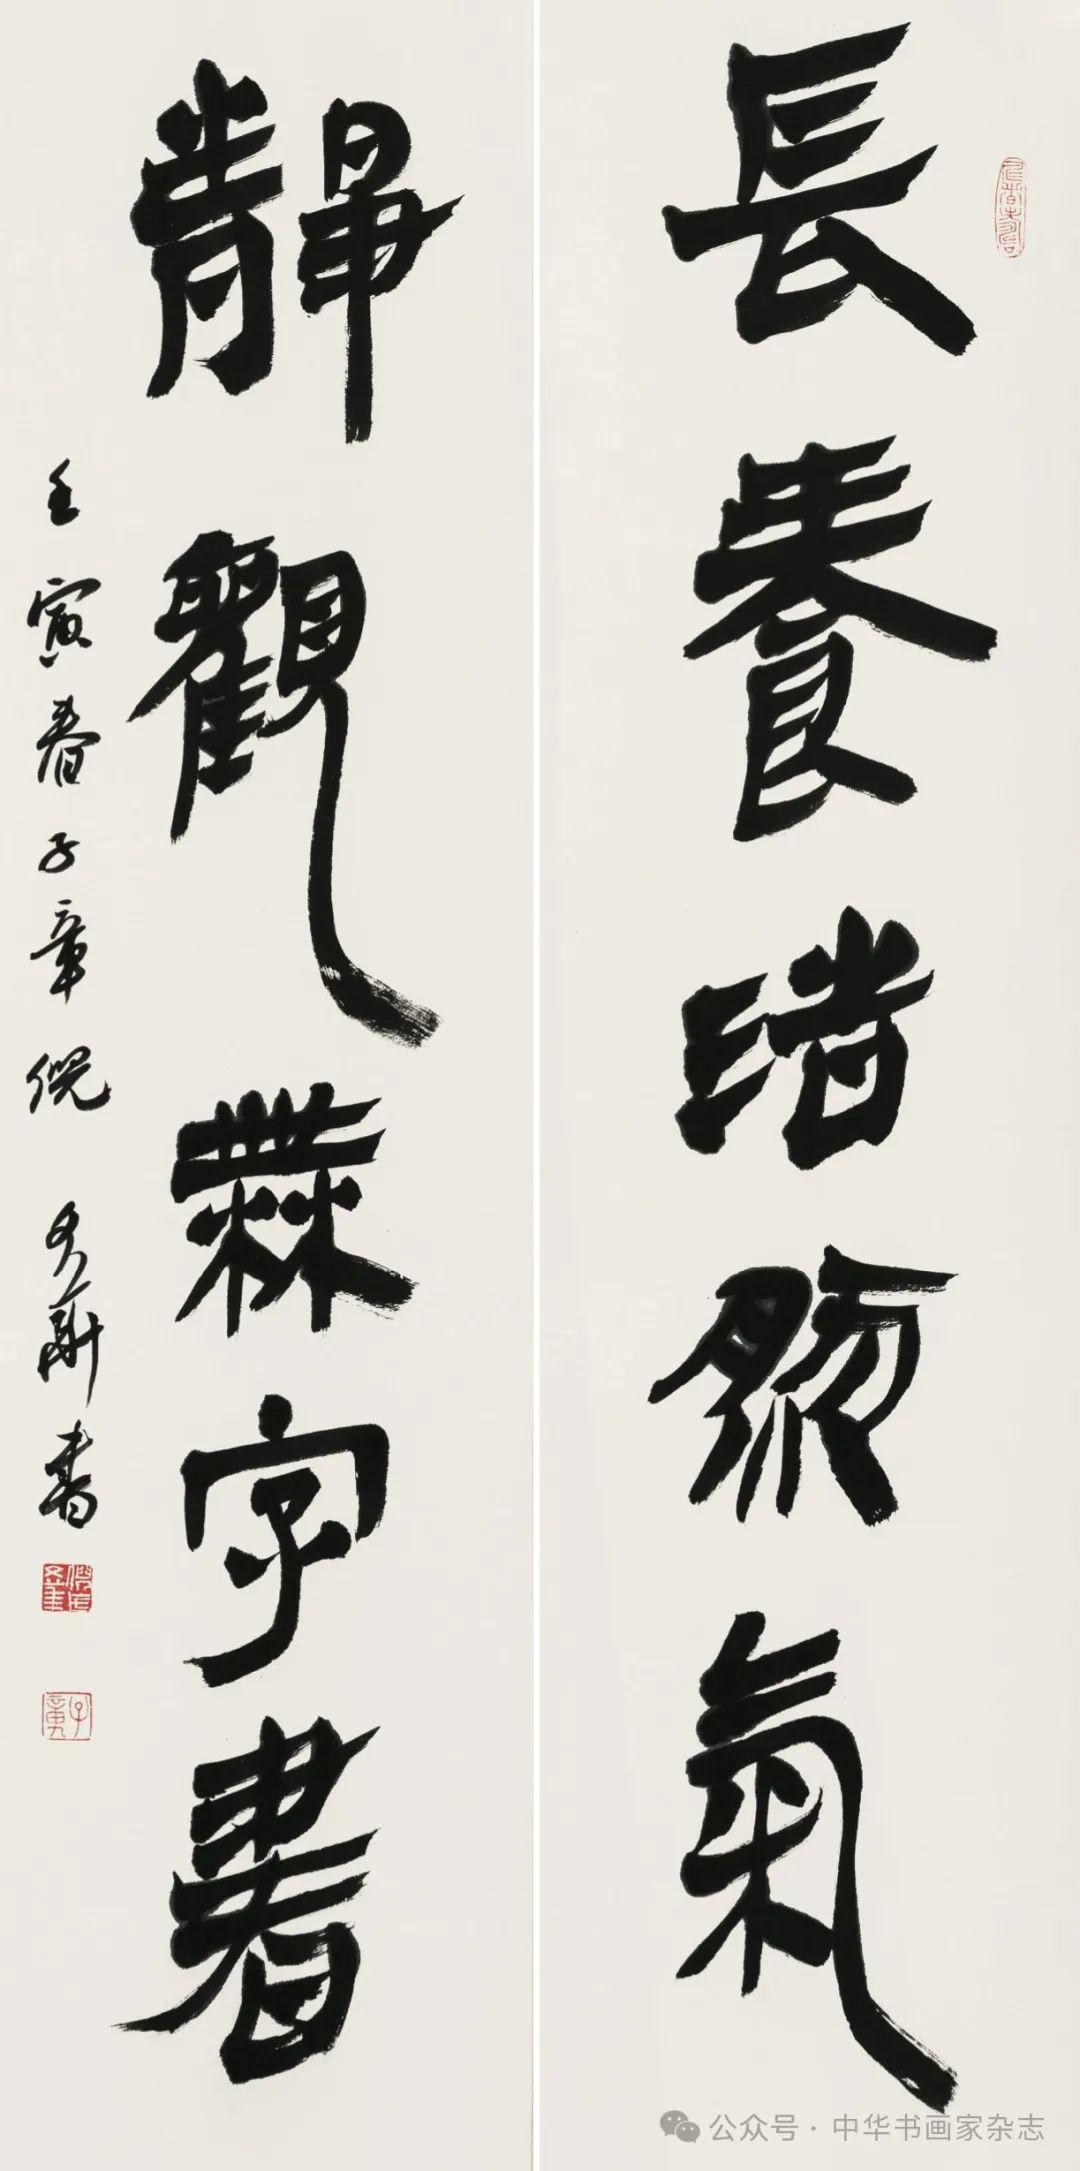 長養浩然氣
靜觀無字書
壬寅春子章倪書
子章
公众号·中华书画家杂志